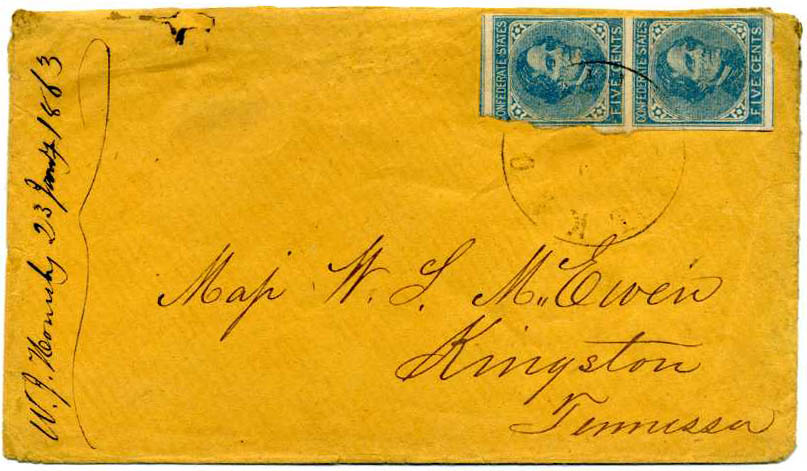 CONFEDERATE STATES
FIVE CENTS
CONFEDERATE STATES
FIVE CENTS
W. J. Hornsby 23 Jany 1863
Maj W. S. McEwen
Kingston
Tennessee